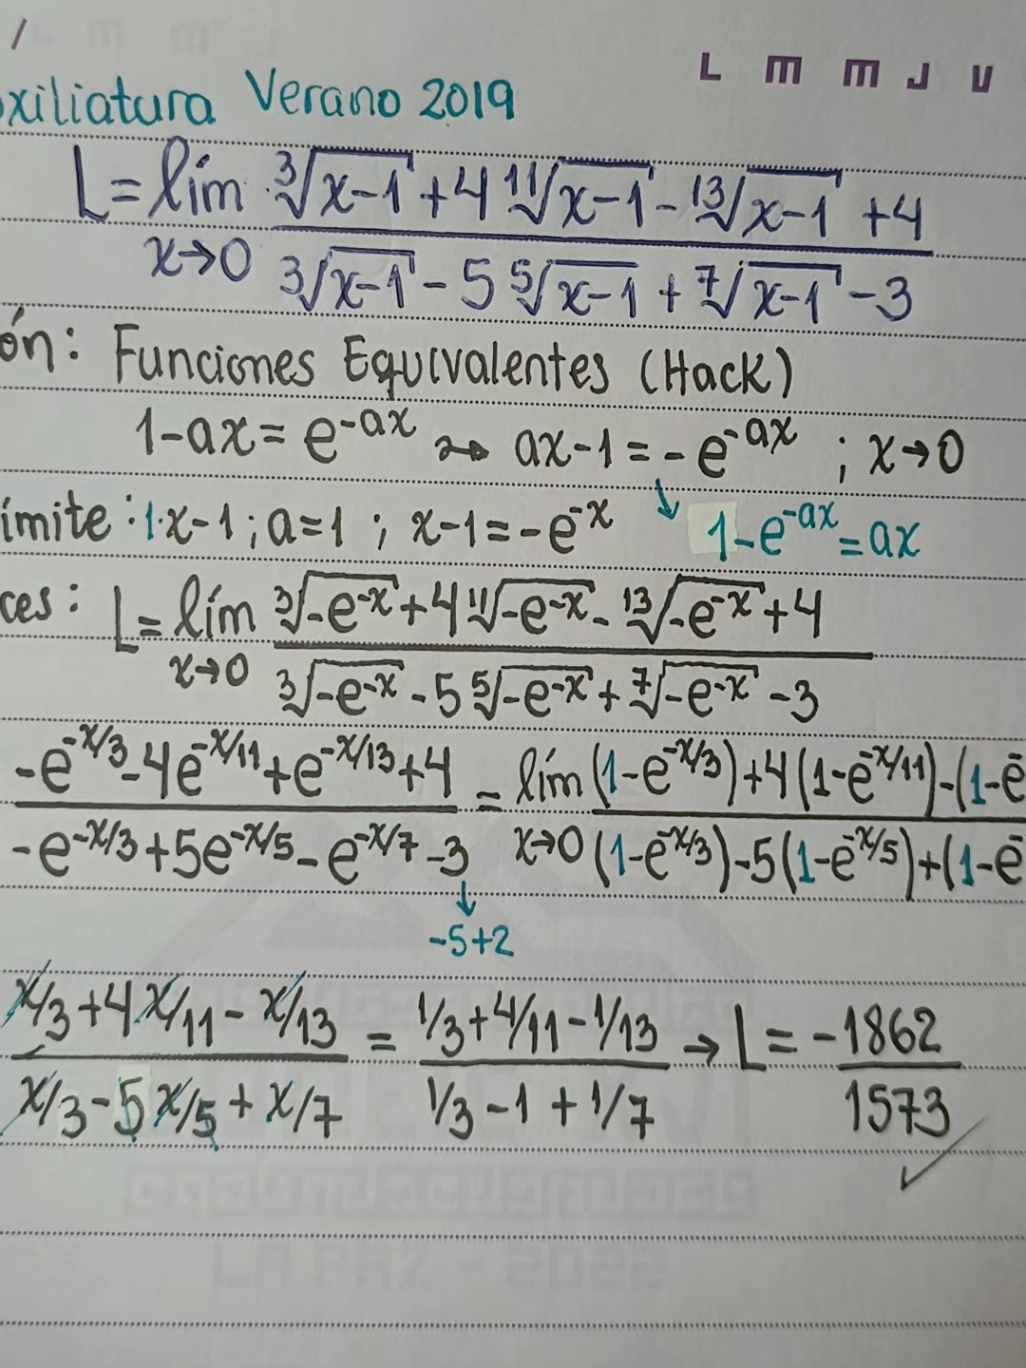 L m m J V
xiliatura Verano 2019
L = lím x→0 (∛(x-1) + 4 ¹¹√(x-1) - ¹³√(x-1) + 4) / (∛(x-1) - 5 ⁵√(x-1) + ⁷√(x-1) - 3)
ón: Funciones Equivalentes (Hack)
1-ax = e^(-ax) ⤳ ax-1 = -e^(-ax) ; x→0
ímite: 1·x-1 ; a=1 ; x-1 = -e^(-x) ↓ 1-e^(-ax) = ax
ces: L = lím x→0 (∛(-e^(-x)) + 4 ¹¹√(-e^(-x)) - ¹³√(-e^(-x)) + 4) / (∛(-e^(-x)) - 5 ⁵√(-e^(-x)) + ⁷√(-e^(-x)) - 3)
(-e^(-x/3) - 4e^(-x/11) + e^(-x/13) + 4) / (-e^(-x/3) + 5e^(-x/5) - e^(-x/7) - 3) = lím x→0 ((1-e^(-x/3)) + 4(1-e^(-x/11)) - (1-e^-) / ((1-e^(-x/3)) - 5(1-e^(-x/5)) + (1-e^-)
↓
-5+2
(x/3 + 4x/11 - x/13) / (x/3 - 5x/5 + x/7) = (1/3 + 4/11 - 1/13) / (1/3 - 1 + 1/7) → L = -1862/1573
LA PAZ - 2022